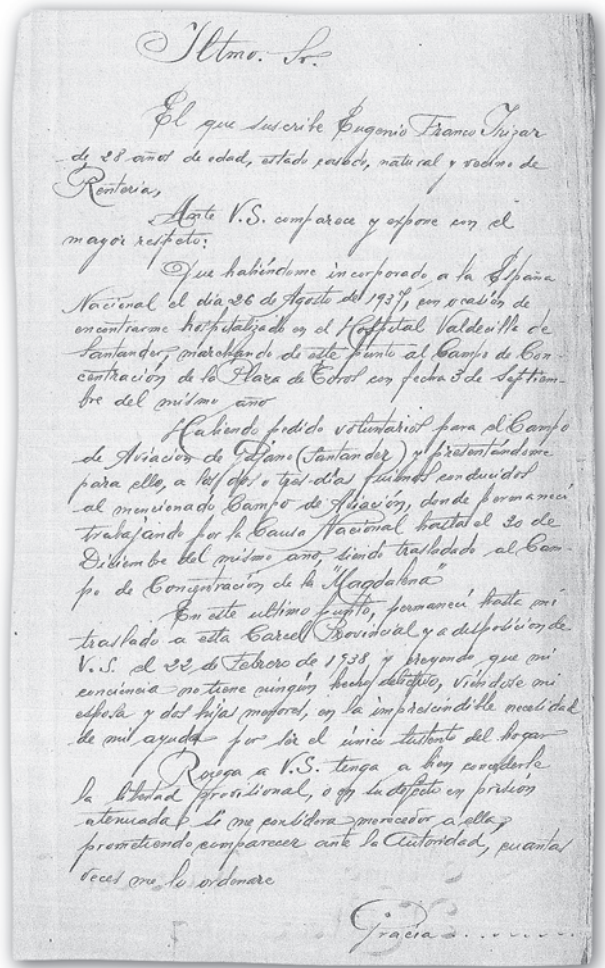 Iltmo. Sr.
El que suscribe Eugenio Franco Irizar
de 28 años de edad, estado casado, natural y vecino de
Rentería,
Ante V.S. comparece y expone con el
mayor respeto:
Que habiéndome incorporado a la España
Nacional el día 26 de Agosto de 1937, con ocasión de
encontrarme hospitalizado en el Hospital Valdecilla de
Santander, marchando de este punto al Campo de Con-
centración de la Plaza de Toros con fecha 3 de Septiem-
bre del mismo año
Habiendo pedido voluntarios para el Campo
de Aviación de (Santander) y presentándome
para ello, a los dos o tres días fuimos conducidos
al mencionado Campo de Aviación, donde permanecí
trabajando por la Causa Nacional hasta el 20 de
Diciembre del mismo año, siendo trasladado al Cam-
po de Concentración de la "Magdalena"
En este ultimo punto, permanecí hasta mi
traslado a esta Carcel Provincial y a disposición de
V.S. el 22 de Febrero de 1938 y creyendo que mi
conciencia no tiene ningún hecho delictivo, viéndose mi
esposa y dos hijas menores, en la imprescindible necesidad
de mi ayuda por ser el único sustento del hogar
Ruega a V.S. tenga a bien concederle
la libertad provisional, o en su defecto en prisión
atenuada si me considera merecedor a ella,
prometiendo comparecer ante la Autoridad, cuantas
veces me lo ordenare
Gracia . . . . . . . .